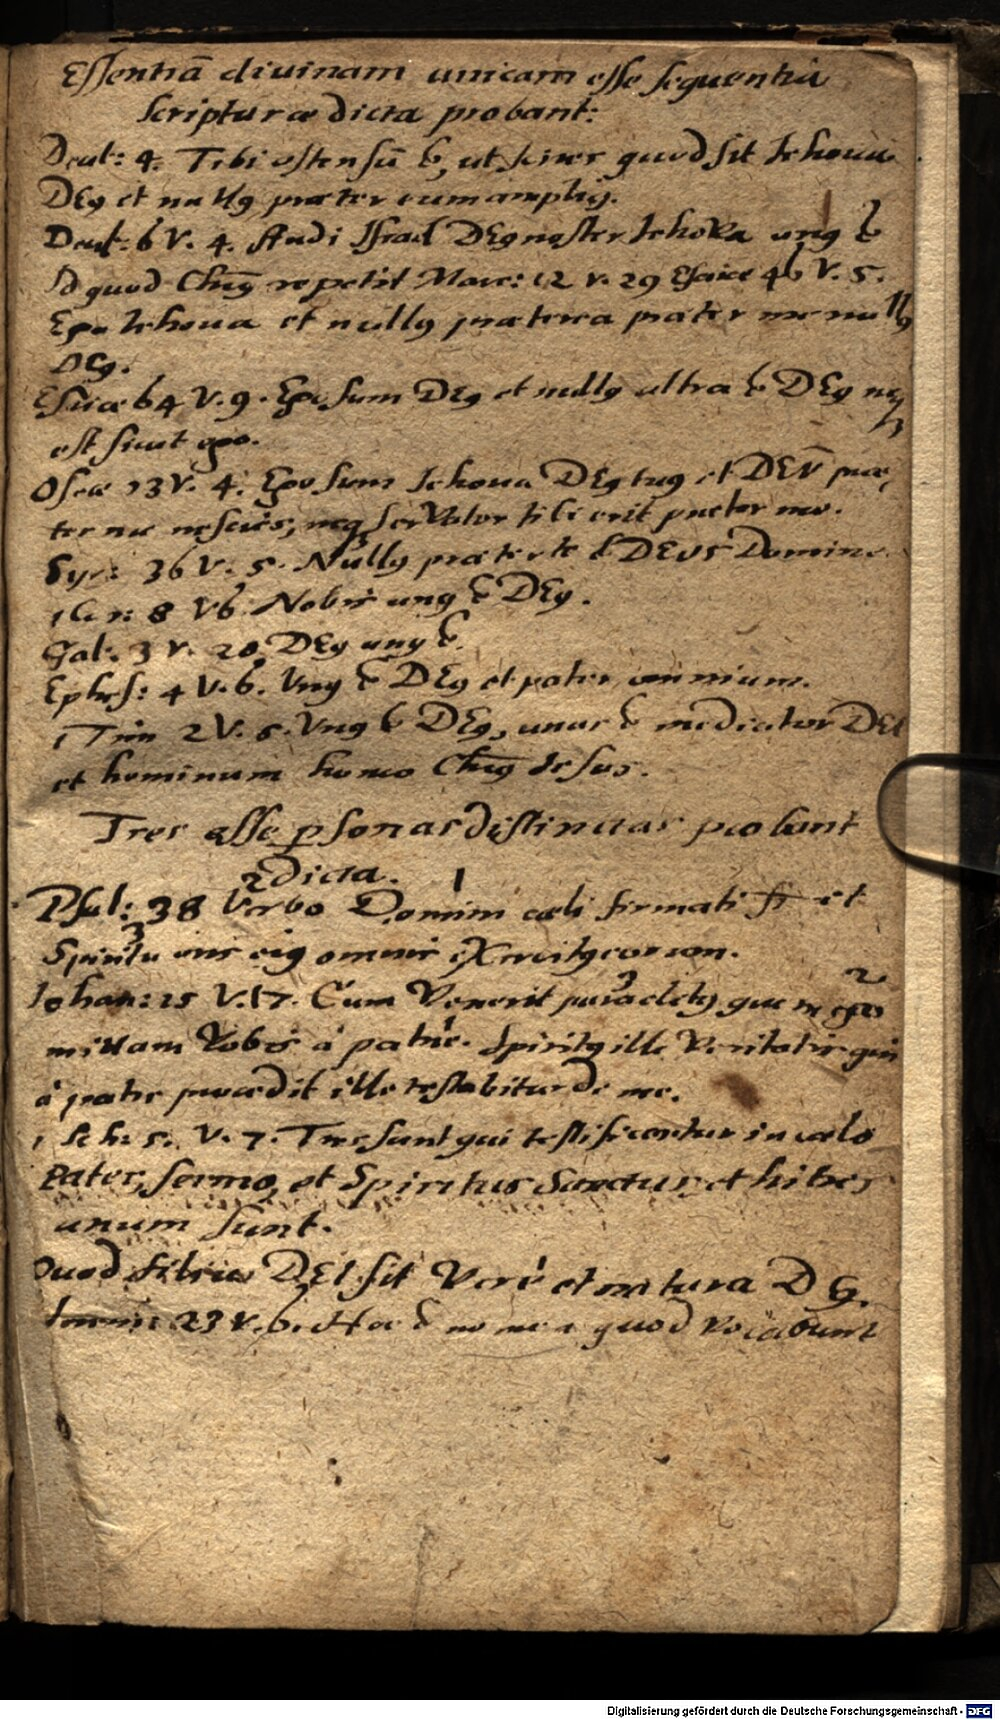 Essentiā divinam unicam esse sequentia
scripturæ dicta probant:
Deut: 4. Tibi ostensū ē, ut scires quod sit Iehova
DEꝰ et nullꝰ præter eum ampliꝰ.
Deut: 6 V. 4. Audi Israel DEꝰ noster Iehova unꝰ ē
Id quod Chūs repetit Marc: 12 v. 29 Esaiæ 46 V. 5.
Ego Iehova et nullꝰ præterea præter me nullꝰ
DEꝰ.
Esaiæ 64 V. 9. Ego sum DEꝰ et nullꝰ ultra ē DEꝰ neqꝫ
est sicut ego.
Oseæ 13 V. 4. Ego sum Iehova DEꝰ tuꝰ et DEŪ præ,
ter me nescies, neqꝫ servator tibi erit præter me.
Syr: 36 V. 5. Nullꝰ præter te ē DEUS Domine.
1 Cor: 8 V 6. Nobis unꝰ ē DEꝰ.
Gal: 3 V. 20. DEꝰ unꝰ ē.
Ephes: 4 V. 6. Unꝰ ē DEꝰ et pater omnium.
1 Tim 2 V. 5. Unꝰ ē DEꝰ, unus ē mediator DEI
et hominum homo Chūs Iesus.
Tres esse ꝑsonas distinctas probant
dicta.
2 1
Psal: 38 Verbo Domini cæli firmati st et
3
Spiritu oris eiꝰ omnis exercitꝰ eorum.
3 2
Iohan: 15 V. 17. Cum Venerit paracletꝰ quem ego
1
mittam Vobis à patre. Spiritꝰ ille Veritatis qui
à patre procedit ille testabitur de me.
1 Ioh: 5. V. 7. Tres sunt qui testificantur in cælo
Pater, sermo, et Spiritus Sanctus, et hi tres
unum sunt.
Quod filius DEI sit Verè et natura DEꝰ.
23 V. 6. Hoc ē nomen quod Vocabunt
Digitalisierung gefördert durch die Deutsche Forschungsgemeinschaft - DFG